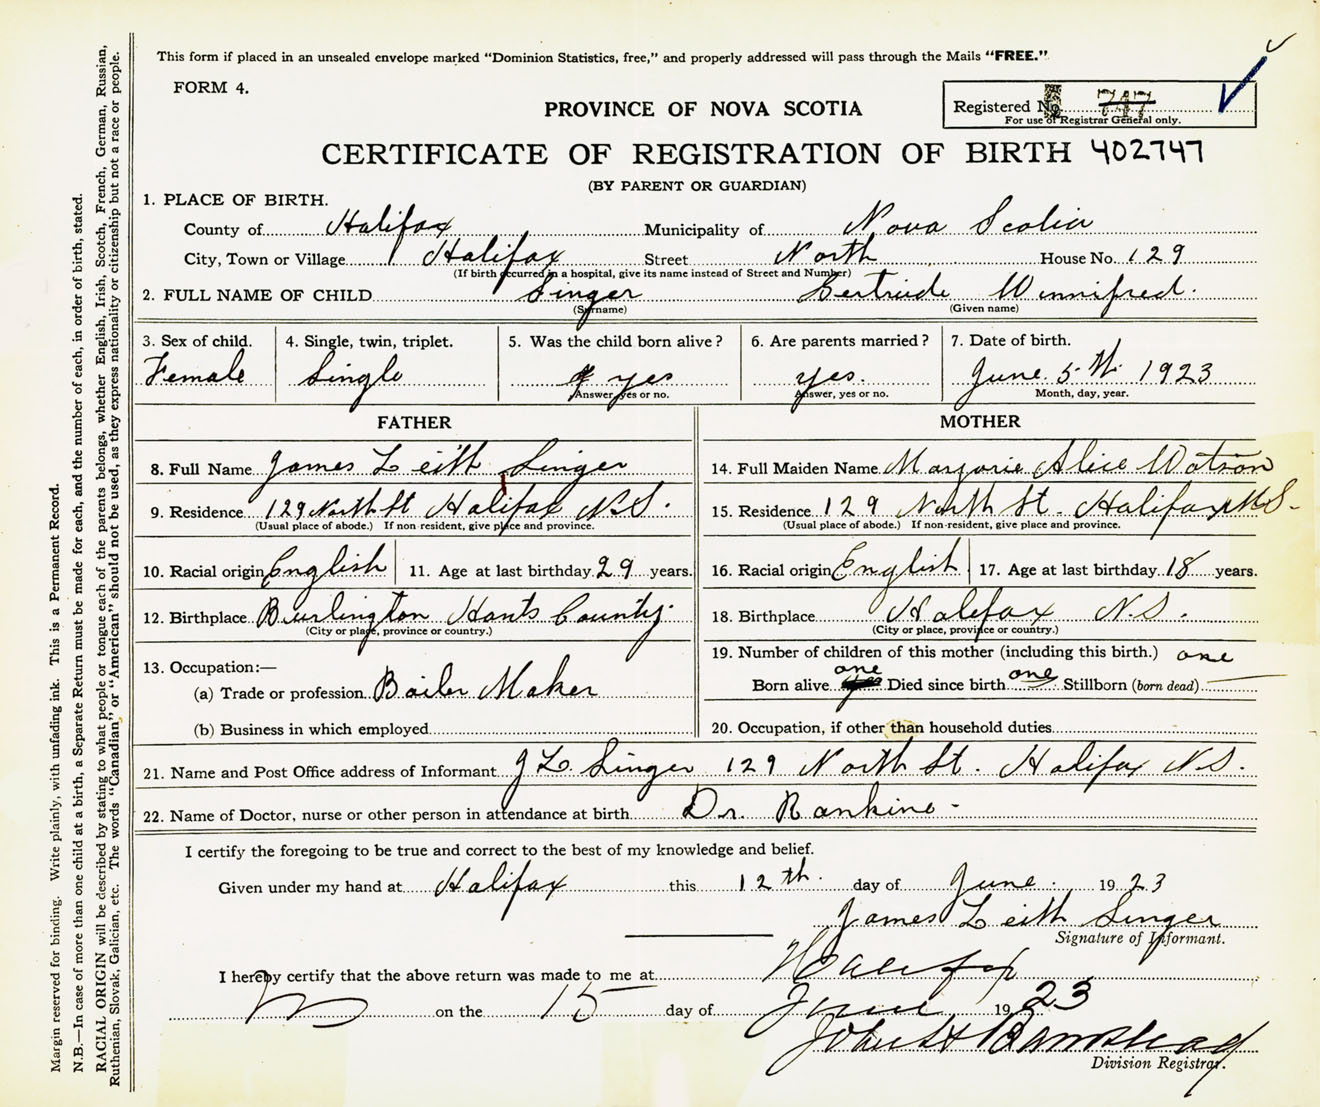 This form if placed in an unsealed envelope marked "Dominion Statistics, free," and properly addressed will pass through the Mails "FREE."
FORM 4.
PROVINCE OF NOVA SCOTIA
Registered No. 747
For use of Registrar General only.
CERTIFICATE OF REGISTRATION OF BIRTH 402747
(BY PARENT OR GUARDIAN)
1. PLACE OF BIRTH.
County of Halifax Municipality of Nova Scotia
City, Town or Village Halifax Street North House No. 129
(If birth occurred in a hospital, give its name instead of Street and Number)
2. FULL NAME OF CHILD Singer Gertrude Winnifred.
(Surname) (Given name)
3. Sex of child. 4. Single, twin, triplet. 5. Was the child born alive? 6. Are parents married? 7. Date of birth.
Female Single yes yes. June 5th 1923
Answer, yes or no. Answer, yes or no. Month, day, year.
FATHER MOTHER
8. Full Name James Leith Singer 14. Full Maiden Name Marjorie Alice Watson
9. Residence 129 North St Halifax N.S. 15. Residence 129 North St. Halifax N.S.
(Usual place of abode.) If non-resident, give place and province. (Usual place of abode.) If non-resident, give place and province.
10. Racial origin English 11. Age at last birthday 29 years. 16. Racial origin English 17. Age at last birthday 18 years.
12. Birthplace Burlington Hants County. 18. Birthplace Halifax N.S.
(City or place, province or country.) (City or place, province or country.)
13. Occupation:— 19. Number of children of this mother (including this birth.) one
(a) Trade or profession Boiler Maker Born alive one Died since birth one Stillborn (born dead) —
(b) Business in which employed 20. Occupation, if other than household duties
21. Name and Post Office address of Informant J L Singer 129 North St. Halifax N.S.
22. Name of Doctor, nurse or other person in attendance at birth Dr. Rankine -
I certify the foregoing to be true and correct to the best of my knowledge and belief.
Given under my hand at Halifax this 12th. day of June. 1923
James Leith Singer
Signature of Informant.
I hereby certify that the above return was made to me at Halifax
on the 15 day of June 1923
John H
Division Registrar.
Margin reserved for binding. Write plainly, with unfading ink. This is a Permanent Record.
N.B.—In case of more than one child at a birth, a Separate Return must be made for each, and the number of each, in order of birth, stated.
RACIAL ORIGIN will be described by stating to what people or tongue each of the parents belongs, whether English, Irish, Scotch, French, German, Russian,
Ruthenian, Slovak, Galician, etc. The words "Canadian," or "American" should not be used, as they express nationality or citizenship but not a race or people.